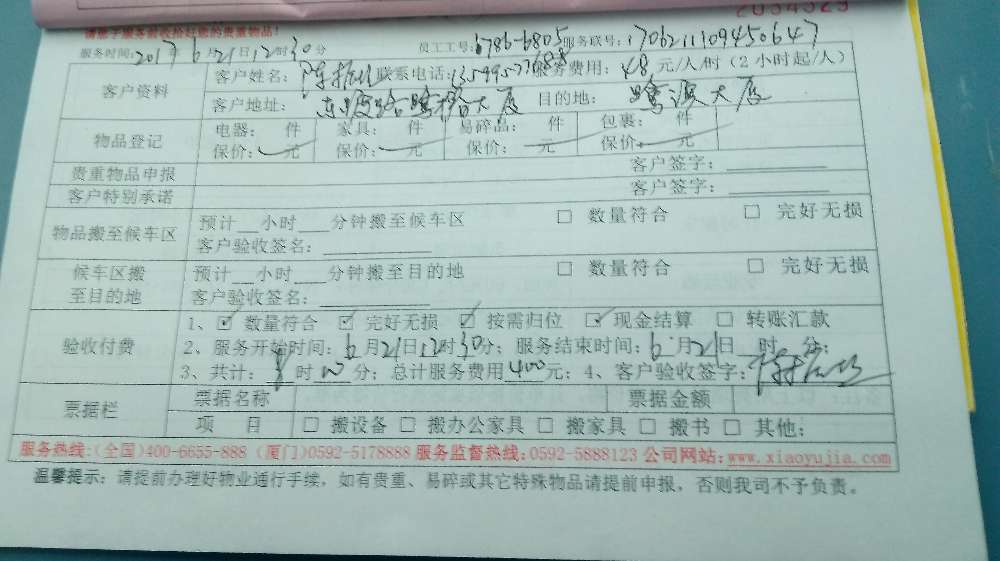 请您于服务前收拾好您的贵重物品!
服务时间:2017年6月21日12时30分 员工工号:6786-6805 服务联号:1706211109450647
客户资料
客户姓名: 联系电话: 服务费用:48元/人/时(2小时起/人)
客户地址: 大厦 目的地: 大厦
物品登记
电器: 件 家具: 件 易碎品: 件 包裹: 件
保价: 元 保价: 元 保价: 元 保价: 元
贵重物品申报 客户签字:
客户特别承诺 客户签字:
物品搬至候车区
预计 小时 分钟搬至候车区 □ 数量符合 □ 完好无损
客户验收签名:
候车区搬至目的地
预计 小时 分钟搬至目的地 □ 数量符合 □ 完好无损
客户验收签名:
验收付费
1、☑ 数量符合 ☑ 完好无损 ☑ 按需归位 ☑ 现金结算 □ 转账汇款
2、服务开始时间:6月21日12时30分;服务结束时间:6月21日 时 分;
3、共计: 时 分;总计服务费用400元;4、客户验收签字:
票据栏
票据名称 票据金额
项 目 □ 搬设备 □ 搬办公家具 □ 搬家具 □ 搬书 □ 其他:
服务热线:(全国)400-6655-888 (厦门)0592-5178888 服务监督热线:0592-5888123 公司网站:www.xiaoyujia.com
温馨提示:请提前办理好物业通行手续,如有贵重、易碎或其它特殊物品请提前申报,否则我司不予负责。